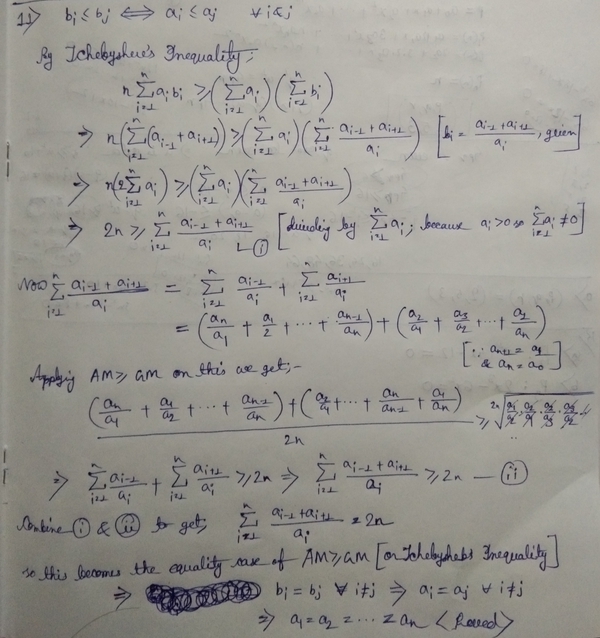 11) b_i ≤ b_j ⟺ a_i ≤ a_j ∀ i & j
By Tchebyshev's Inequality,
n ∑_{i=1}^{n} a_i b_i ≥ (∑_{i=1}^{n} a_i) (∑_{i=1}^{n} b_i)
⇒ n (∑_{i=1}^{n} (a_{i-1} + a_{i+1})) ≥ (∑_{i=1}^{n} a_i) (∑_{i=1}^{n} (a_{i-1} + a_{i+1})/a_i) [b_i = (a_{i-1} + a_{i+1})/a_i, given]
⇒ n(2 ∑_{i=1}^{n} a_i) ≥ (∑_{i=1}^{n} a_i) (∑_{i=1}^{n} (a_{i-1} + a_{i+1})/a_i)
⇒ 2n ≥ ∑_{i=1}^{n} (a_{i-1} + a_{i+1})/a_i — (i) [dividing by ∑_{i=1}^{n} a_i, because a_i > 0 so ∑_{i=1}^{n} a_i ≠ 0]
Now ∑_{i=1}^{n} (a_{i-1} + a_{i+1})/a_i = ∑_{i=1}^{n} a_{i-1}/a_i + ∑_{i=1}^{n} a_{i+1}/a_i
= (a_n/a_1 + a_1/2 + ... + a_{n-1}/a_n) + (a_2/a_1 + a_3/a_2 + ... + a_1/a_n)
[∵ a_{n+1} = a_1
& a_n = a_0]
Applying AM ≥ GM on this we get;-
((a_n/a_1 + a_1/a_2 + ... + a_{n-1}/a_n) + (a_2/a_1 + ... + a_n/a_{n-1} + a_1/a_n))/2n ≥
⇒ ∑_{i=1}^{n} a_{i-1}/a_i + ∑_{i=1}^{n} a_{i+1}/a_i ≥ 2n ⇒ ∑_{i=1}^{n} (a_{i-1} + a_{i+1})/a_i ≥ 2n — (ii)
Combine (i) & (ii) to get, ∑_{i=1}^{n} (a_{i-1} + a_{i+1})/a_i = 2n
so this becomes the equality case of AM ≥ GM [or Tchebyshebs Inequality]
⇒ b_i = b_j ∀ i ≠ j ⇒ a_i = a_j ∀ i ≠ j
⇒ a_1 = a_2 = ... = a_n <Proved>